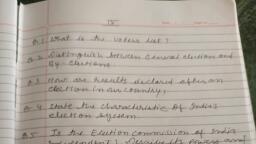 Q.1 What is the voters list?
Q.2 Distinguish between General election and
By-elections.
Q.3 How are results declared after an
election in our country?
Q.4 State the characteristic of India's
election system.
Q.5 Is the Election commission of India
independent? Describe its powers and